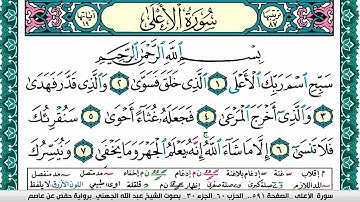 سُورَةُ الأَعْلَى
بِسْمِ اللَّهِ الرَّحْمَٰنِ الرَّحِيمِ
سَبِّحِ اسْمَ رَبِّكَ الْأَعْلَى ١ الَّذِي خَلَقَ فَسَوَّىٰ ٢ وَالَّذِي قَدَّرَ فَهَدَىٰ
٣ وَالَّذِي أَخْرَجَ الْمَرْعَىٰ ٤ فَجَعَلَهُ غُثَاءً أَحْوَىٰ ٥ سَنُقْرِئُكَ
فَلَا تَنسَىٰ ٦ إِلَّا مَا شَاءَ اللَّهُ إِنَّهُ يَعْلَمُ الْجَهْرَ وَمَا يَخْفَىٰ ٧ وَنُيَسِّرُكَ
سورة الأعلى . الصفحة ٥٩١ . الحزب ٦٠ . الجزء ٣٠ . بصوت الشيخ عبد الله الجهني . برواية حفص عن عاصم